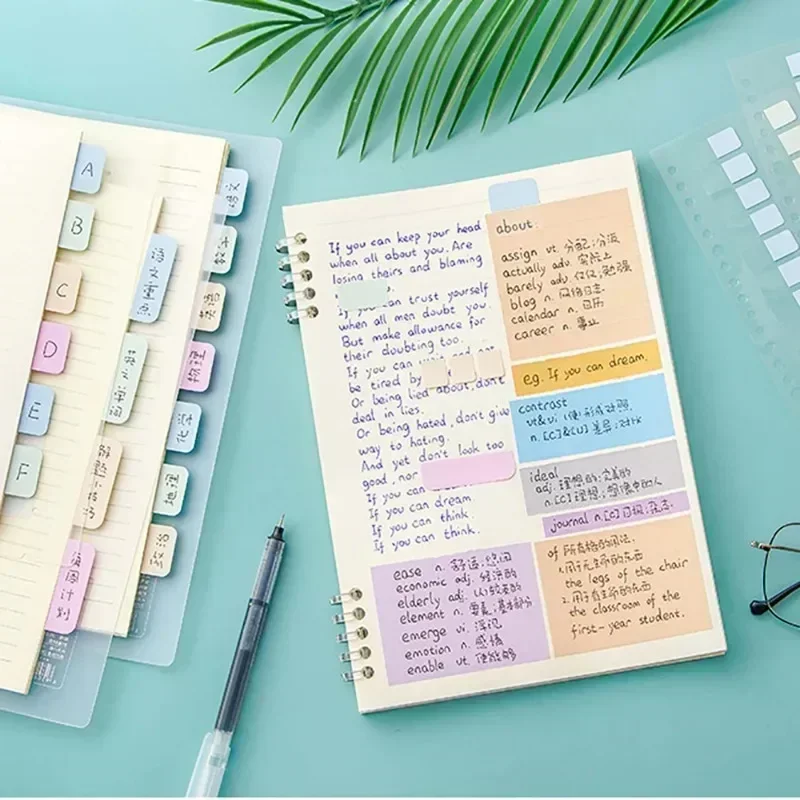 A
B
C
D
E
F
语文重点
错题小技巧
每周计划
语文
数学
英语
物理
化学
地理
政治
If you can keep your head
when all about you. Are
losing theirs and blaming
If you can trust yourself
when all men doubt you.
But make allowance for
their doubting too.
If you can
be tired by
Or being lied about, don't
deal in lies.
Or being hated, don't give
way to hating.
And yet don't look too
good, nor
If you can
If you can dream
If you can think.
If you can think.
about.
assign vt. 分配;分派
actually adv. 实际上
barely adv. 仅仅;勉强
blog n. 网络日志
calendar n. 日历
career n. 事业
e.g. If you can dream.
contrast
vt&vi (使)形成对照.
n. [C]&[U]差异;对比
ideal
adj. 理想的;完美的
n. [C]理想;想像中的人
journal n. [C]日报;杂志.
ease n. 舒适;悠闲
economic adj. 经济的
elderly adj. (人)较老的
element n. 要素;基本部分
emerge vi. 浮现
emotion n. 感情
enable vt. 使能够
of 所有格的用法:
1.用于无生命的东西
the legs of the chair
2.用于有生命的东西
the classroom of the
first-year student.